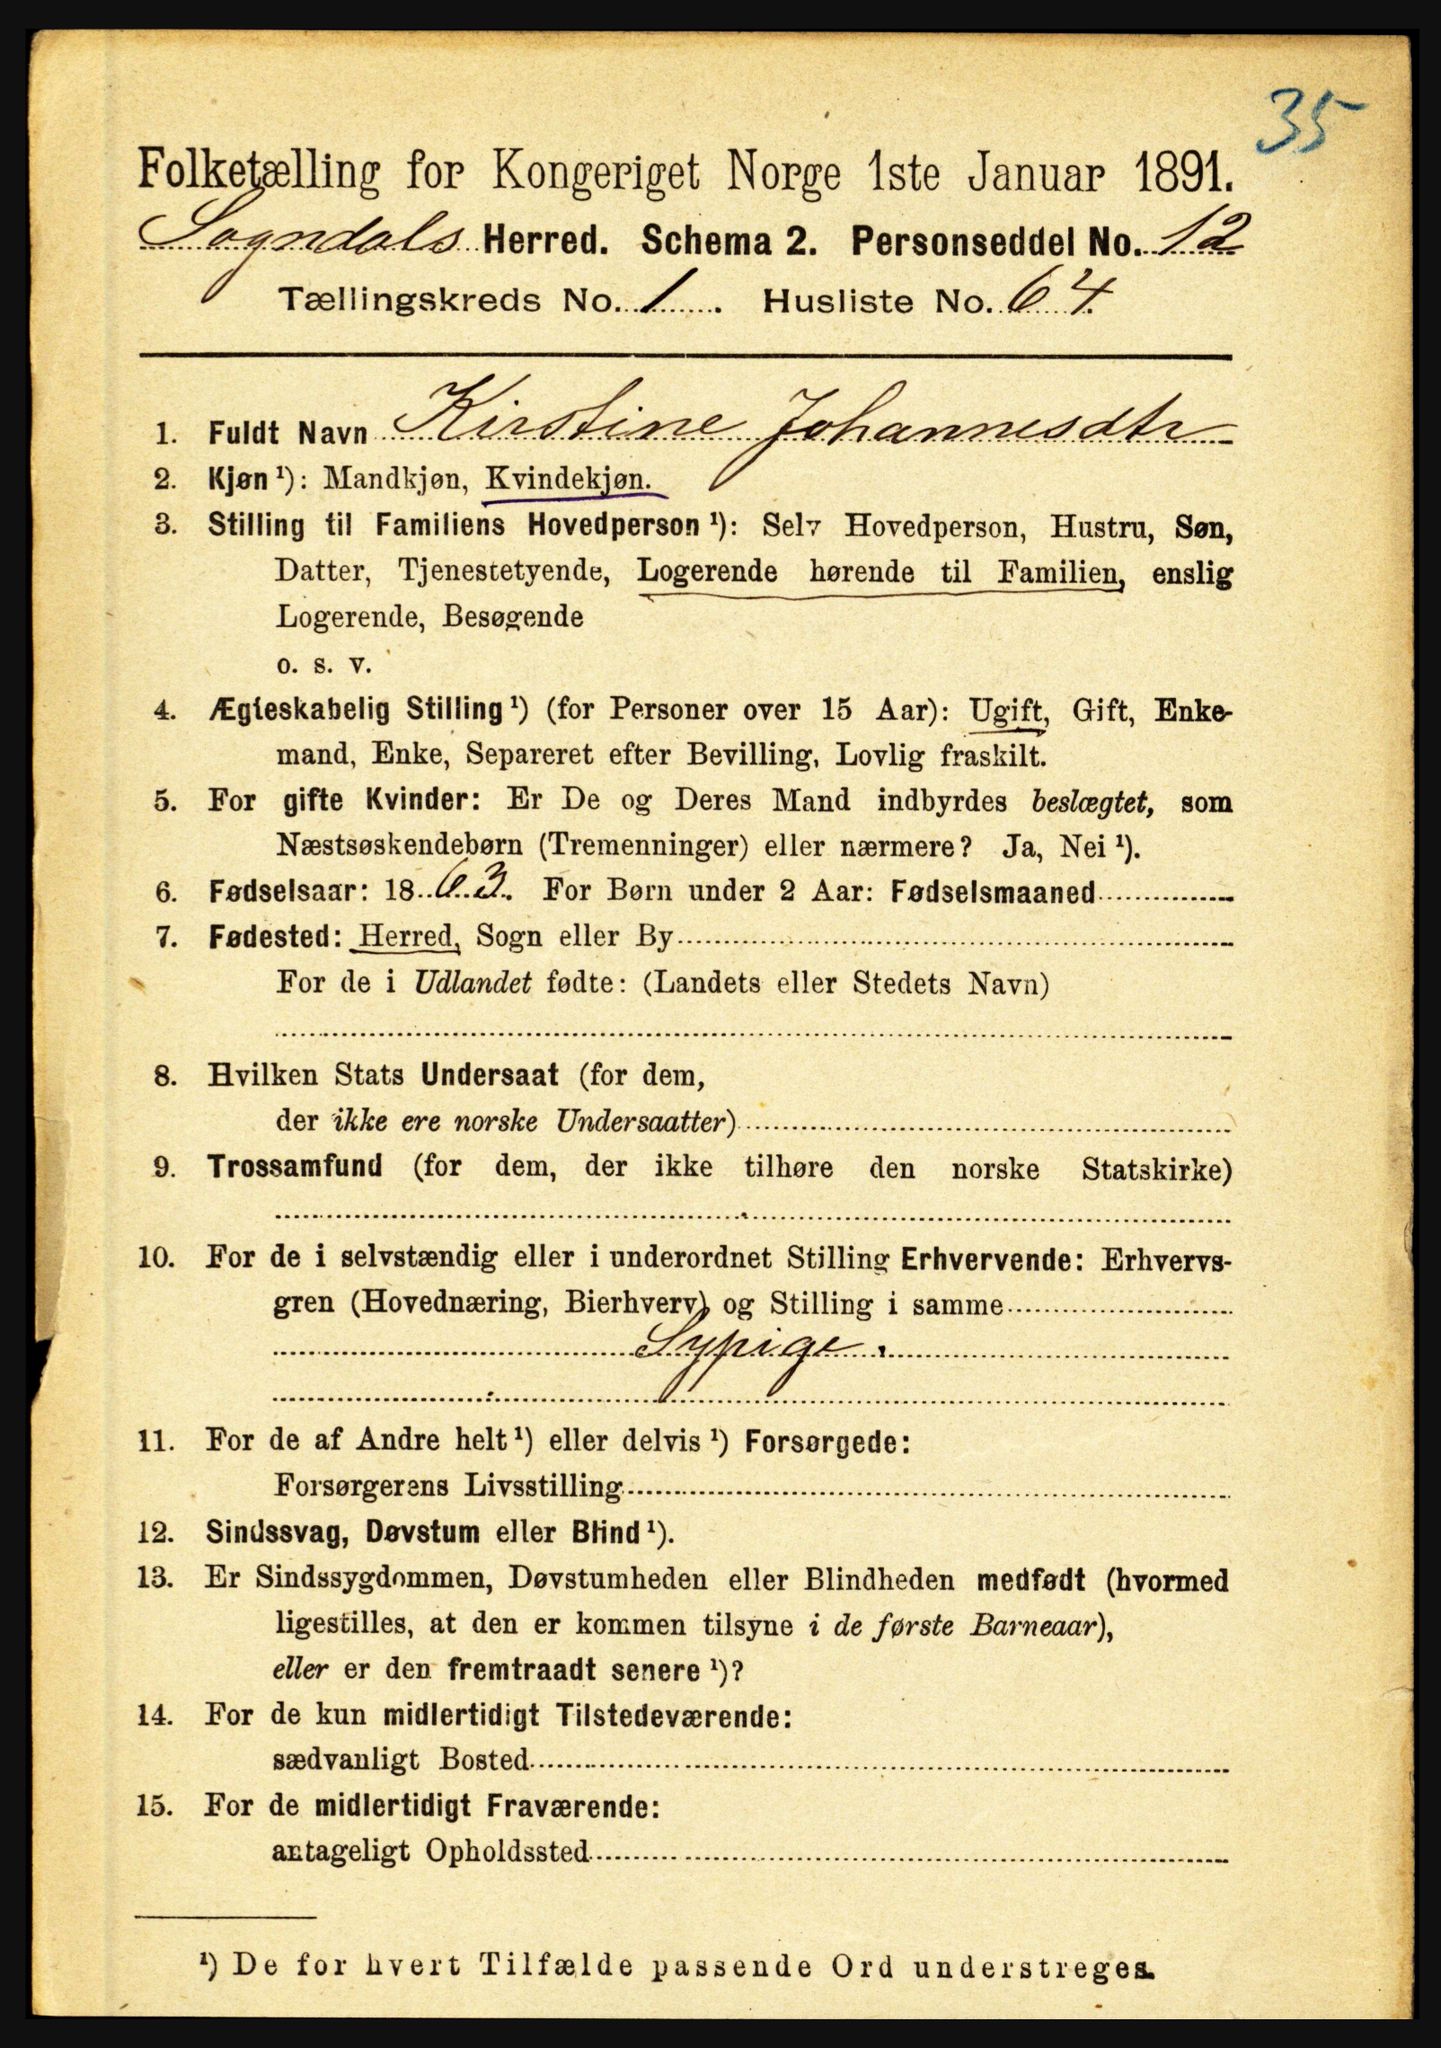 35
Folketælling for Kongeriget Norge 1ste Januar 1891.
Sogndals Herred. Schema 2. Personseddel No. 12
Tællingskreds No. 1. Husliste No. 64.
1. Fuldt Navn Kirstine Johannesdtr
2. Kjøn ¹): Mandkjøn, Kvindekjøn.
3. Stilling til Familiens Hovedperson ¹): Selv Hovedperson, Hustru, Søn,
Datter, Tjenestetyende, Logerende hørende til Familien, enslig
Logerende, Besøgende
o. s. v.
4. Ægteskabelig Stilling ¹) (for Personer over 15 Aar): Ugift, Gift, Enke-
mand, Enke, Separeret efter Bevilling, Lovlig fraskilt.
5. For gifte Kvinder: Er De og Deres Mand indbyrdes beslægtet, som
Næstsøskendebørn (Tremenninger) eller nærmere? Ja, Nei ¹).
6. Fødselsaar: 1863. For Børn under 2 Aar: Fødselsmaaned
7. Fødested: Herred, Sogn eller By
For de i Udlandet fødte: (Landets eller Stedets Navn)
8. Hvilken Stats Undersaat (for dem,
der ikke ere norske Undersaatter)
9. Trossamfund (for dem, der ikke tilhøre den norske Statskirke)
10. For de i selvstændig eller i underordnet Stilling Erhvervende: Erhvervs-
gren (Hovednæring, Bierhverv) og Stilling i samme
Sypige.
11. For de af Andre helt ¹) eller delvis ¹) Forsørgede:
Forsørgerens Livsstilling
12. Sindssvag, Døvstum eller Blind ¹).
13. Er Sindssygdommen, Døvstumheden eller Blindheden medfødt (hvormed
ligestilles, at den er kommen tilsyne i de første Barneaar),
eller er den fremtraadt senere ¹)?
14. For de kun midlertidigt Tilstedeværende:
sædvanligt Bosted
15. For de midlertidigt Fraværende:
antageligt Opholdssted
¹) De for hvert Tilfælde passende Ord understreges.